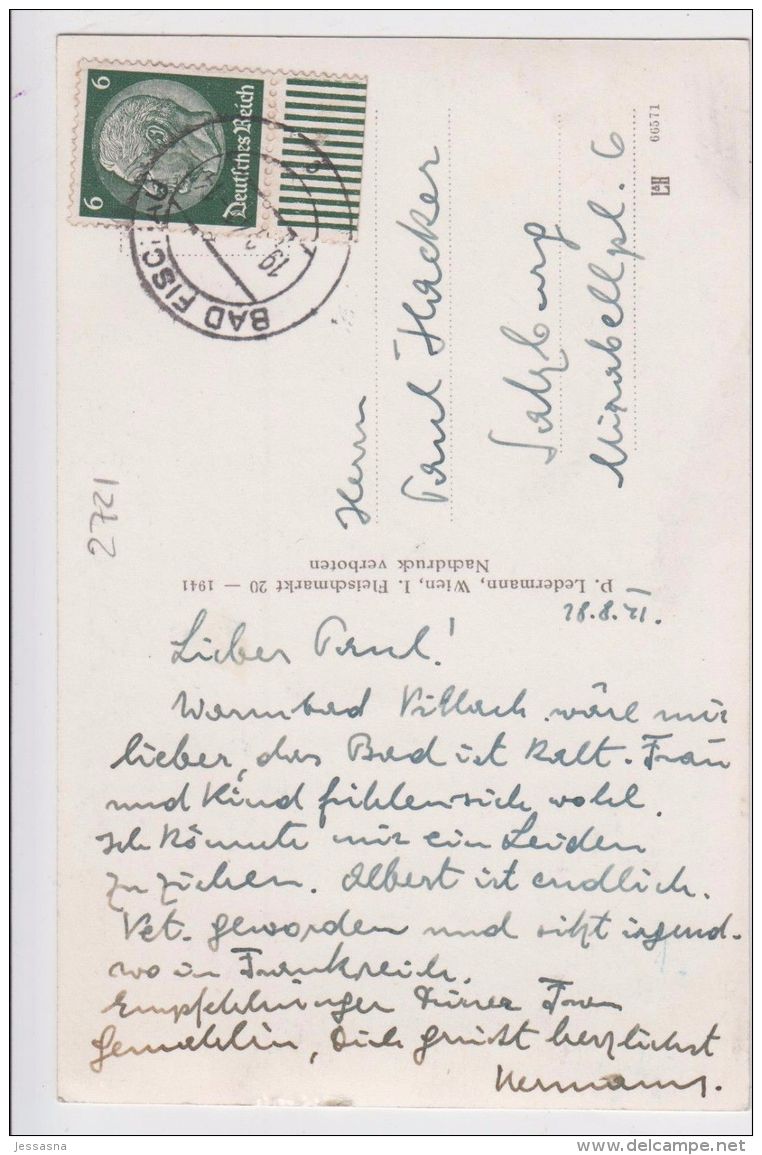 6
6
Deutsches Reich
BAD FISC
19
66571
Herrn
Paul Hacker
Salzburg
Mirabellpl. 6
2721
P. Ledermann, Wien, I. Fleischmarkt 20 — 1941
Nachdruck verboten
18.8.41.
Lieber Paul!
Warmbad Villach wäre mir
lieber, das Bad ist kalt. Frau
und Kind fühlen sich wohl.
Ich könnte mir ein Leiden
zu ziehen. Albert ist endlich
Vet. geworden und sitzt irgend-
wo in Frankreich.
Empfehlungen Deiner Frau
Gemahlin, Dich grüsst herzlichst
Hermann.
jessasna
www.delcampe.net